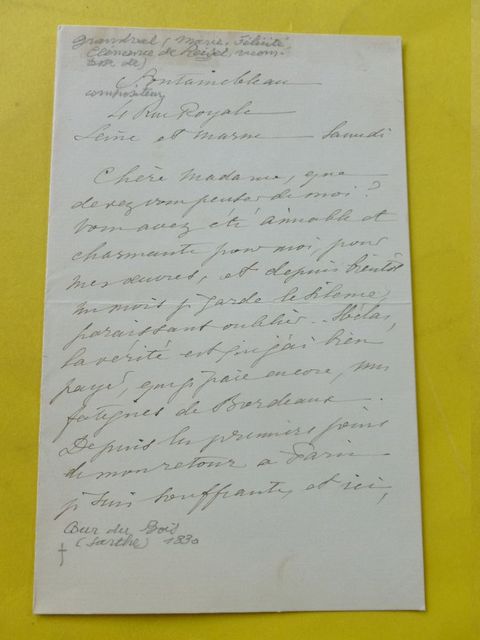 Grandval (Marie, Félicité
Clémence de Reiset, vicom-
tesse de)
Fontainebleau
compositeur
4 Rue Royale
Seine et Marne — Samedi
Chère Madame, que
devez vous penser de moi ?
Vous avez été aimable et
charmante pour moi, pour
mes œuvres, et depuis bientôt
un mois je garde le silence,
paraissant oublier.. Hélas,
la vérité est que j'ai bien
payé, que je paie encore, mes
fatigues de Bordeaux.
Depuis les premiers jours
de mon retour à Paris
je suis souffrante, et ici,
Cour du Bois
(Sarthe) 1830